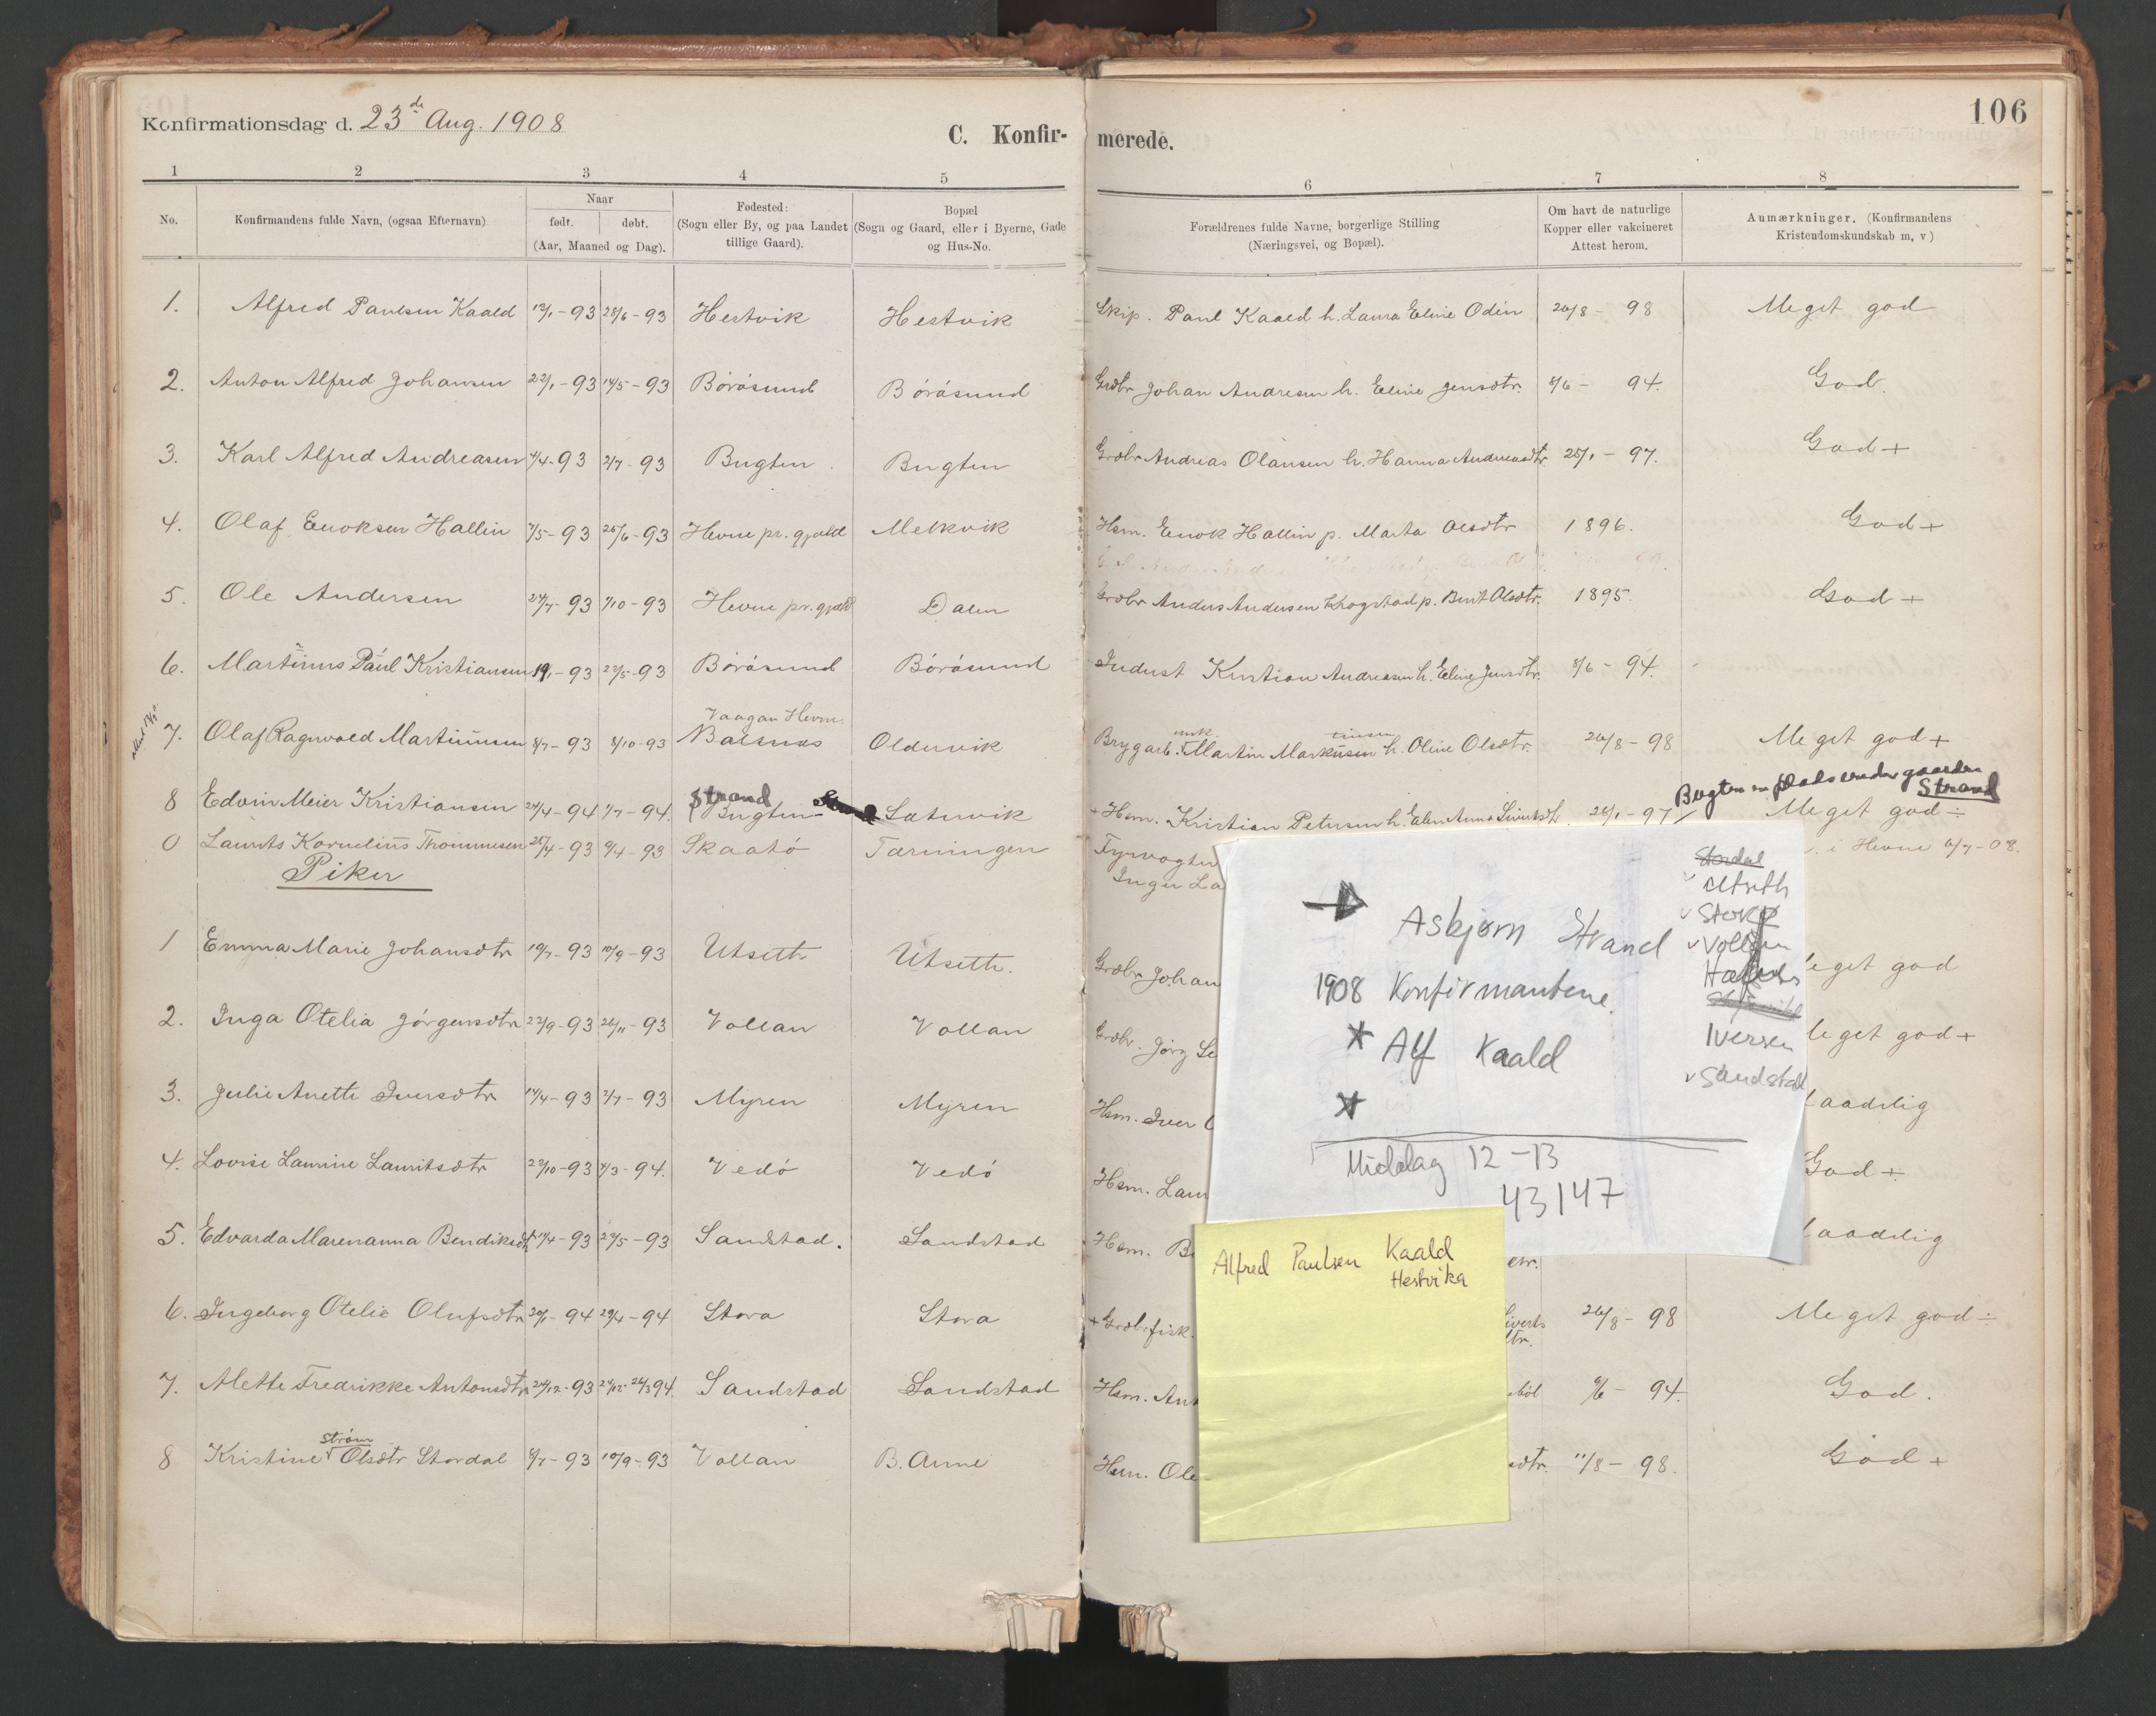 106
Konfirmationsdag d. 23de Aug. 1908
C. Konfir- merede.
1 2 3 4 5 6 7 8
No.
Konfirmandens fulde Navn, (ogsaa Efternavn)
Naar
født. døbt.
(Aar, Maaned og Dag).
Fødested:
(Sogn eller By, og paa Landet
tillige Gaard).
Bopæl
(Sogn og Gaard, eller i Byerne, Gade
og Hus-No.
Forældrenes fulde Navne, borgerlige Stilling
(Næringsvei, og Bopæl).
Om havt de naturlige
Kopper eller vakcineret
Attest herom.
Anmærkninger. (Konfirmandens
Kristendomskundskab m, v)
1. Alfred Paulsen Kaald 12/1-93 28/6-93 Hestvik Hestvik Skip. Paul Kaald h. Laura Eline Odin 26/8- 98 Meget god
2. Anton Alfred Johansen 22/1-93 14/5-93 Börösund Börösund Grdbr Johan Andresen h. Eline Jensdtr. 8/6- 94. God.
3. Karl Alfred Andreasen 4/4-93 2/7-93 Bugten Bugten Grdbr Andreas Olansen h. Hanna Andreasdtr 25/1- 97. God +
4. Olaf Enoksen Hallin 7/5-93 25/6-93 Hevne pr. gjæld Melkvik Hsm. Enok Hallin p. Marta Olsdtr 1896. God +
5. Ole Andersen 24/7-93 1/10-93 Hevne pr. gjæld Dalen Grdbr Anders Andersen Krogstad p. Berit Olsdtr. 1895. God +
6. Martinus Paul Kristiansen 19/1-93 22/5-93 Börösund Börösund Indust Kristian Andreasen h. Eline Jensdtr. 8/6- 94.
Vaagan Hevne
7. Olaf Ragnvald Martinusen 8/7-93 8/10-93 Balsnes Oldervik Brygarb. Martin Markusen h. Oline Olsdtr. 26/8-98 Meget god +
Bugten en plads under gaarden
Strand
8 Edvin Meier Kristiansen 24/4-94 1/7-94. Strand Bugten Sætervik + Hsm. Kristian Petersen h. Elen Anna Sivertsdtr. 26/1-97 Meget god ÷
0 Laurits Kornelius Thommesen 25/4-93 9/4-93 Skaatö Tærningen Fyrvogter i Hevne 6/7-08.
Inger La
Piker
1 Emma Marie Johansdtr 19/7-93 10/9-93 Utseth Utseth. Grdbr Johan eget god
2. Inga Otelia Jörgensdtr 22/9-93 26/11-93 Vollan Vollan Grdbr. Jörg eget god +
3. Julie Anette Iversdtr 14/4-93 2/7-93 Myren Myren Hsm. Iver aadelig
4. Lovise Laurine Lauritsdtr 22/10-93 4/3-94. Vedö Vedö Hsm. Laur God +
5. Edvarda Marenanna Bendiksdtr 14/4-93 22/5-93 Sandstad. Sandstad Hsm. Be aadelig
6. Ingeborg Otelie Olufsdtr 20/1-94 29/4-94 Stora Stora + Grdbr fisk. 26/8-98 Meget god ÷
7. Alette Fredrikke Antonsdtr 24/12-93 24/12- 26/3 94. Sandstad Sandstad Hsm. Ant 9/6- 94. God.
Ström
8 Kristine Olsdtr Stordal 6/7-93 10/9-93 Vollan B. Aune Hsm. Ole sdtr. 11/8- 98. God +
Asbjørn Strand
1908 Konfirmantene.
* Alf Kaald
*
Middag 12-13
43147
Stordal
Utseth
Vollan
Iversen
Sandstad
Alfred Paulsen Kaald
Hestvika